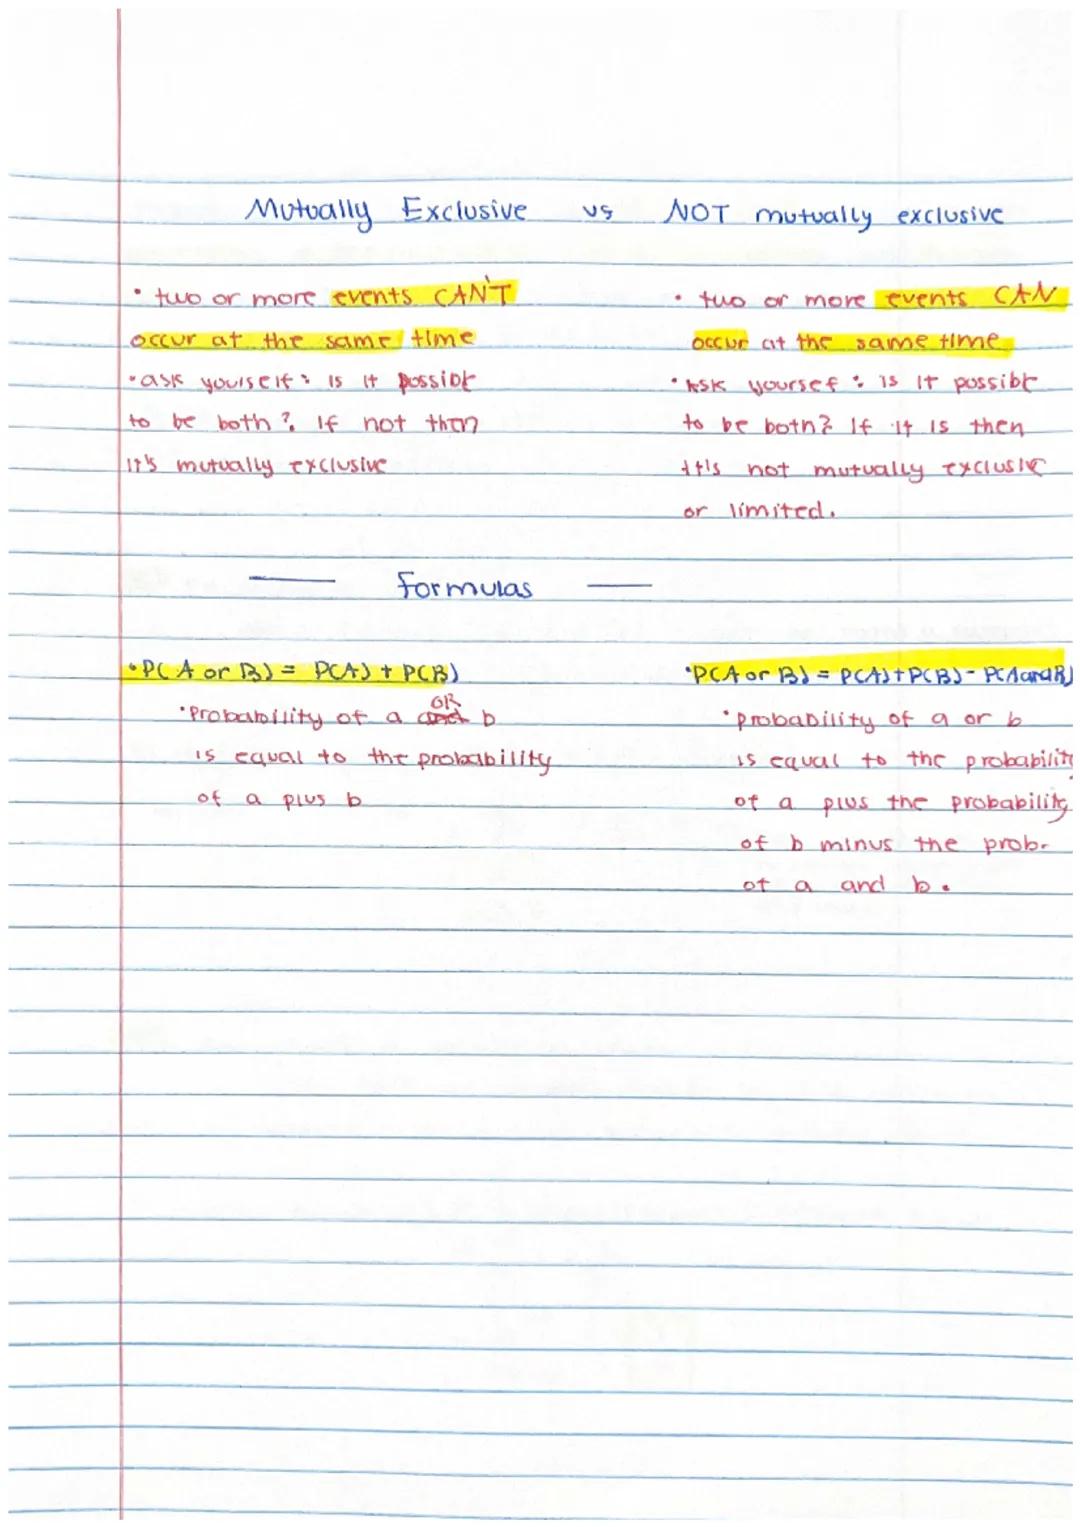 Mutually Exclusive vs NOT mutually exclusive
• two or more events CAN'T
occur at the same time
• ask yourself: is it possible
to be both? If not then
it's mutually exclusive
• two or more events CAN
occur at the same time
• Ask yoursef: is it possible
to be both? If it is then
it's not mutually exclusive
or limited.
— Formulas —
• P(A or B) = P(A) + P(B)
• Probability of a and OR b
is equal to the probability
of a plus b
• P(A or B) = P(A)+P(B)- P(A and B)
• probability of a or b
is equal to the probability
of a plus the probability
of b minus the prob.
of a and b.